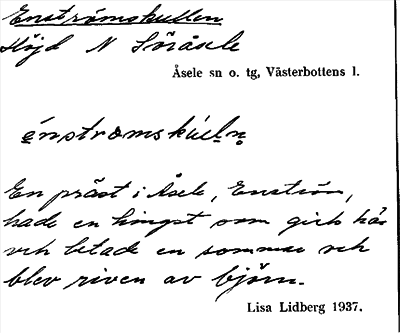 Enströmskullen
Höjd N Söråsele
Åsele sn o. tg, Västerbottens l.
énstromskùlṇ
En präst i Åsele, Enström,
hade en hingst som gick här
och betade en sommar och
blev riven av björn.
Lisa Lidberg 1937.